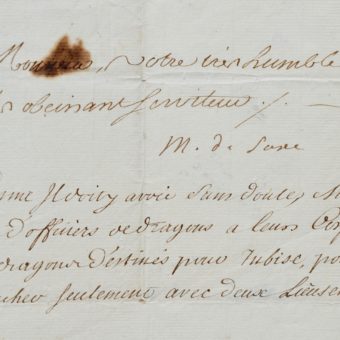 Monsieur, Votre tres humble
obeissant serviteur ./. —
M. de Saxe
Il doit y avoir Sans doute,
D'officiers de Dragons a leurs
dragons Destinés pour Subise,
seulement avec deux Lieuten